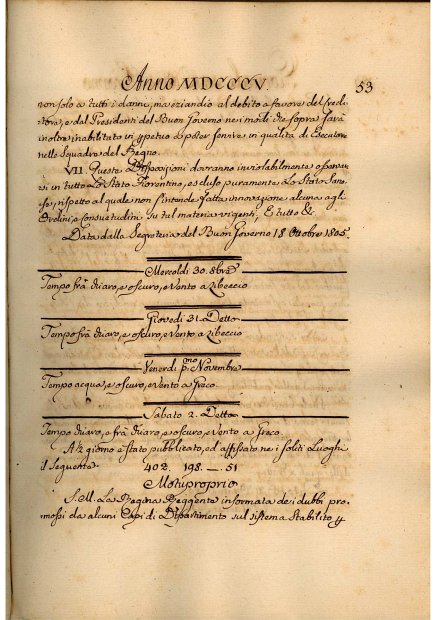 Anno MDCCCV.
53
non solo a tutti i danni, ma eziandio al debito a favore del Credi-
tore, e dal Presidente del Buon Governo nei modi che sopra sarà
inoltre inabilitato in ppetuo a poter servire in qualità di Esecutore
nelle Squadre del Regno.
VII. Queste Disposizioni dovranno inviolabilmente osservar-
si in tutto Lo Stato Fiorentino, escluso puramente Lo Stato Sane-
se, rispetto al quale non s'intende fatta innovazione alcuna agli
Ordini, e Consuetudini in tal materia vigenti, E tutto &c.
Data dalla Segreteria del Buon Governo 18. Ottobre 1805.
Mercoldì 30. 8bre
Tempo frà chiaro, e oscuro, e Vento a Libeccio
Giovedì 31. Detto
Tempo frà chiaro, e oscuro, e Vento a Libeccio
Venerdì pmo Novembre
Tempo acqua, e oscuro, e Vento a Greco.
Sabato 2. Detto
Tempo chiaro, e frà chiaro, e oscuro, e Vento a Greco.
giorno è stato pubblicato, ed affissato ne i soliti Luoghi
il seguente. 402. 198. — 51
Motuproprio
S. M. La Regina Reggente informata de i dubbi pro-
mossi da alcuni Capi di Dipartimento sul sistema stabilito